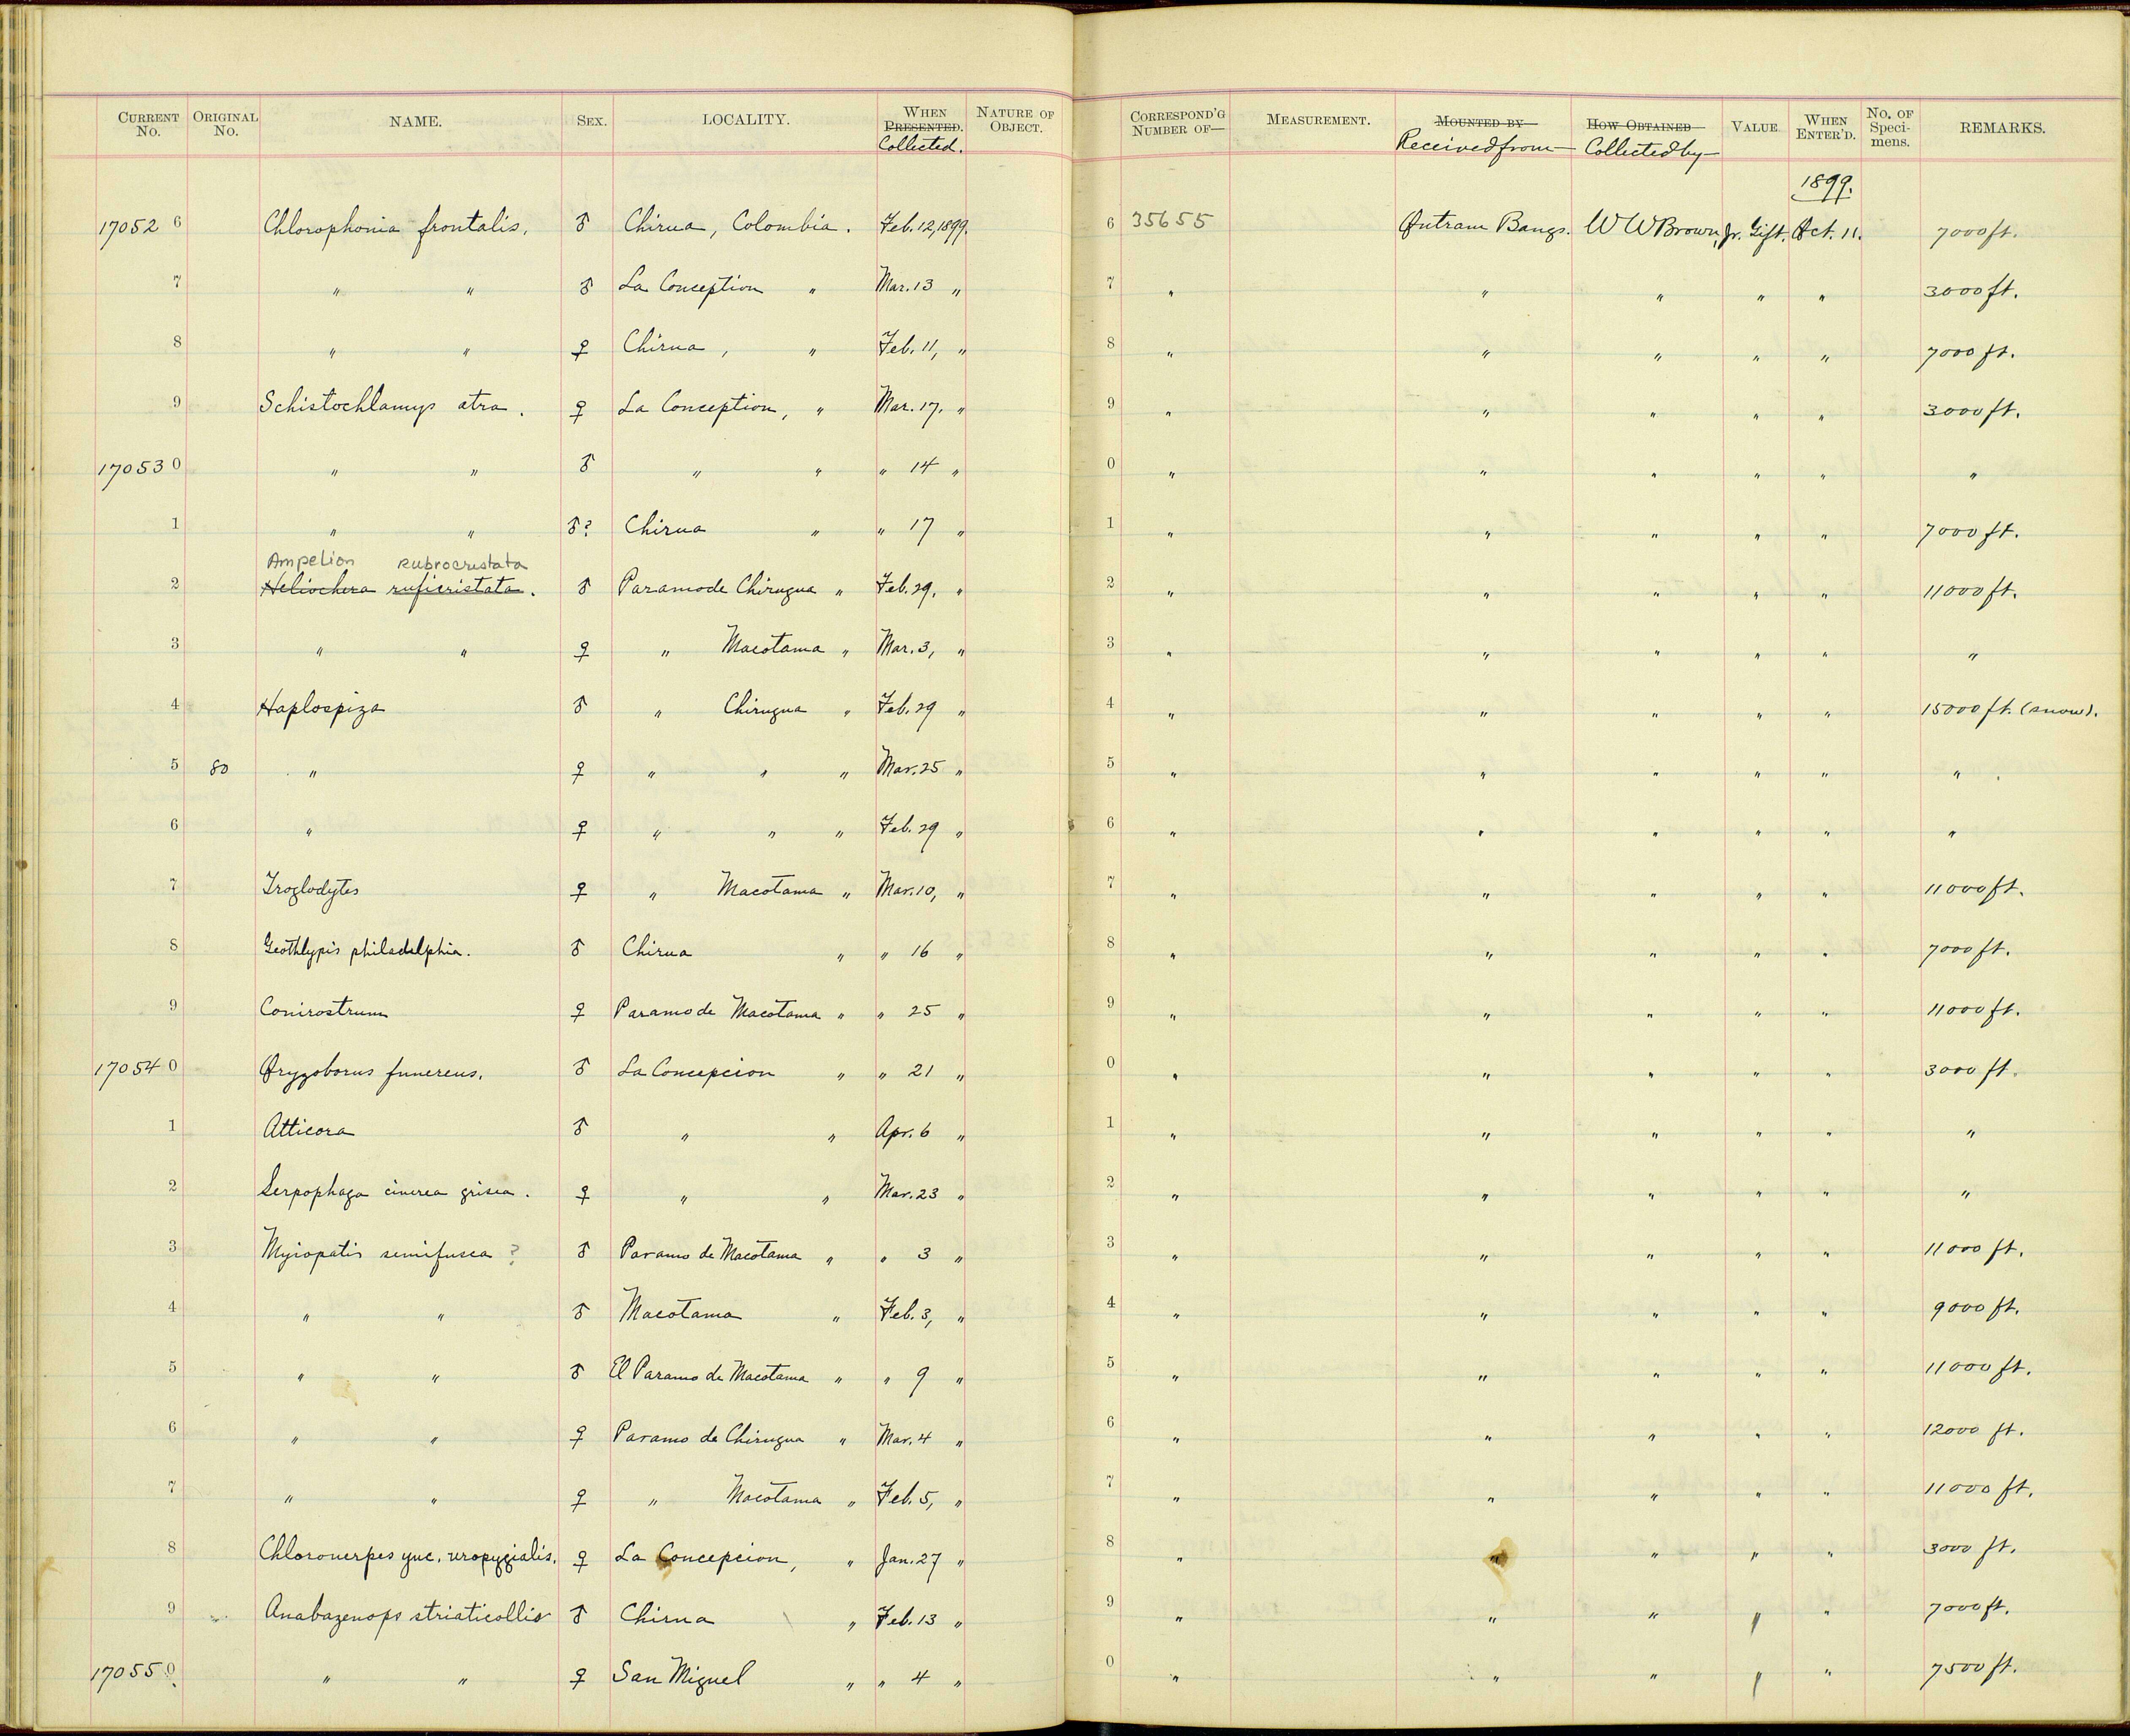 CURRENT No. ORIGINAL No. NAME. SEX. LOCALITY. WHEN PRESENTED. Collected. NATURE OF OBJECT. CORRESPOND'G NUMBER OF— MEASUREMENT. MOUNTED BY Received from— HOW OBTAINED Collected by— VALUE. WHEN ENTER'D. No. OF Speci-mens. REMARKS.
1899.
17052 6 Chlorophonia frontalis. ♂ Chirua, Colombia. Feb. 12, 1899. 6 35655 Outram Bangs. W W Brown, Jr. Gift. Oct. 11. 7000 ft.
7 " " ♂ La Conception " Mar. 13 " 7 " " " " " 3000 ft.
8 " " ♀ Chirua, " Feb. 11, " 8 " " " " " 7000 ft.
9 Schistochlamys atra. ♀ La Conception, " Mar. 17. " 9 " " " " " 3000 ft.
17053 0 " " ♂ " " " 14 " 0 " " " " " "
1 " " ♂? Chirua " " 17 " 1 " " " " " 7000 ft.
Ampelion rubrocristata
2 Heliochera ruficristata. ♂ Paramo de Chirugua " Feb. 29, " 2 " " " " " 11000 ft.
3 " " ♀ " Macotama " Mar. 3, " 3 " " " " " "
4 Haplospiza ♂ " Chirugua " Feb. 29 " 4 " " " " " 15000 ft. (snow).
5 80 " ♀ " " " Mar. 25 " 5 " " " " " "
6 " ♀ " " " Feb. 29 " 6 " " " " " "
7 Troglodytes ♀ " Macotama " Mar. 10, " 7 " " " " " 11000 ft.
8 Geothlypis philadelphia. ♂ Chirua " " 16 " 8 " " " " " 7000 ft.
9 Conirostrum ♀ Paramo de Macotama " " 25 " 9 " " " " " 11000 ft.
17054 0 Oryzoborus funereus. ♂ La Concepcion " " 21 " 0 " " " " " 3000 ft.
1 Atticora ♂ " " Apr. 6 " 1 " " " " " "
2 Serpophaga cinerea grisea. ♀ " " Mar. 23 " 2 " " " " " "
3 Myiopatis semifusca ? ♂ Paramo de Macotama " " 3 " 3 " " " " " 11000 ft.
4 " " ♂ Macotama " Feb. 3, " 4 " " " " " 9000 ft.
5 " " ♂ El Paramo de Macotama " " 9 " 5 " " " " " 11000 ft.
6 " " ♀ Paramo de Chirugua " Mar. 4 " 6 " " " " " 12000 ft.
7 " " ♀ " Macotama " Feb. 5, " 7 " " " " " 11000 ft.
8 Chloronerpes yuc. uropygialis. ♀ La Concepcion, " Jan. 27 " 8 " " " " " 3000 ft.
9 Anabazenops striaticollis ♂ Chirua " Feb. 13 " 9 " " " " " 7000 ft.
17055 0 " " ♀ San Miguel " " 4 " 0 " " " " " 7500 ft.